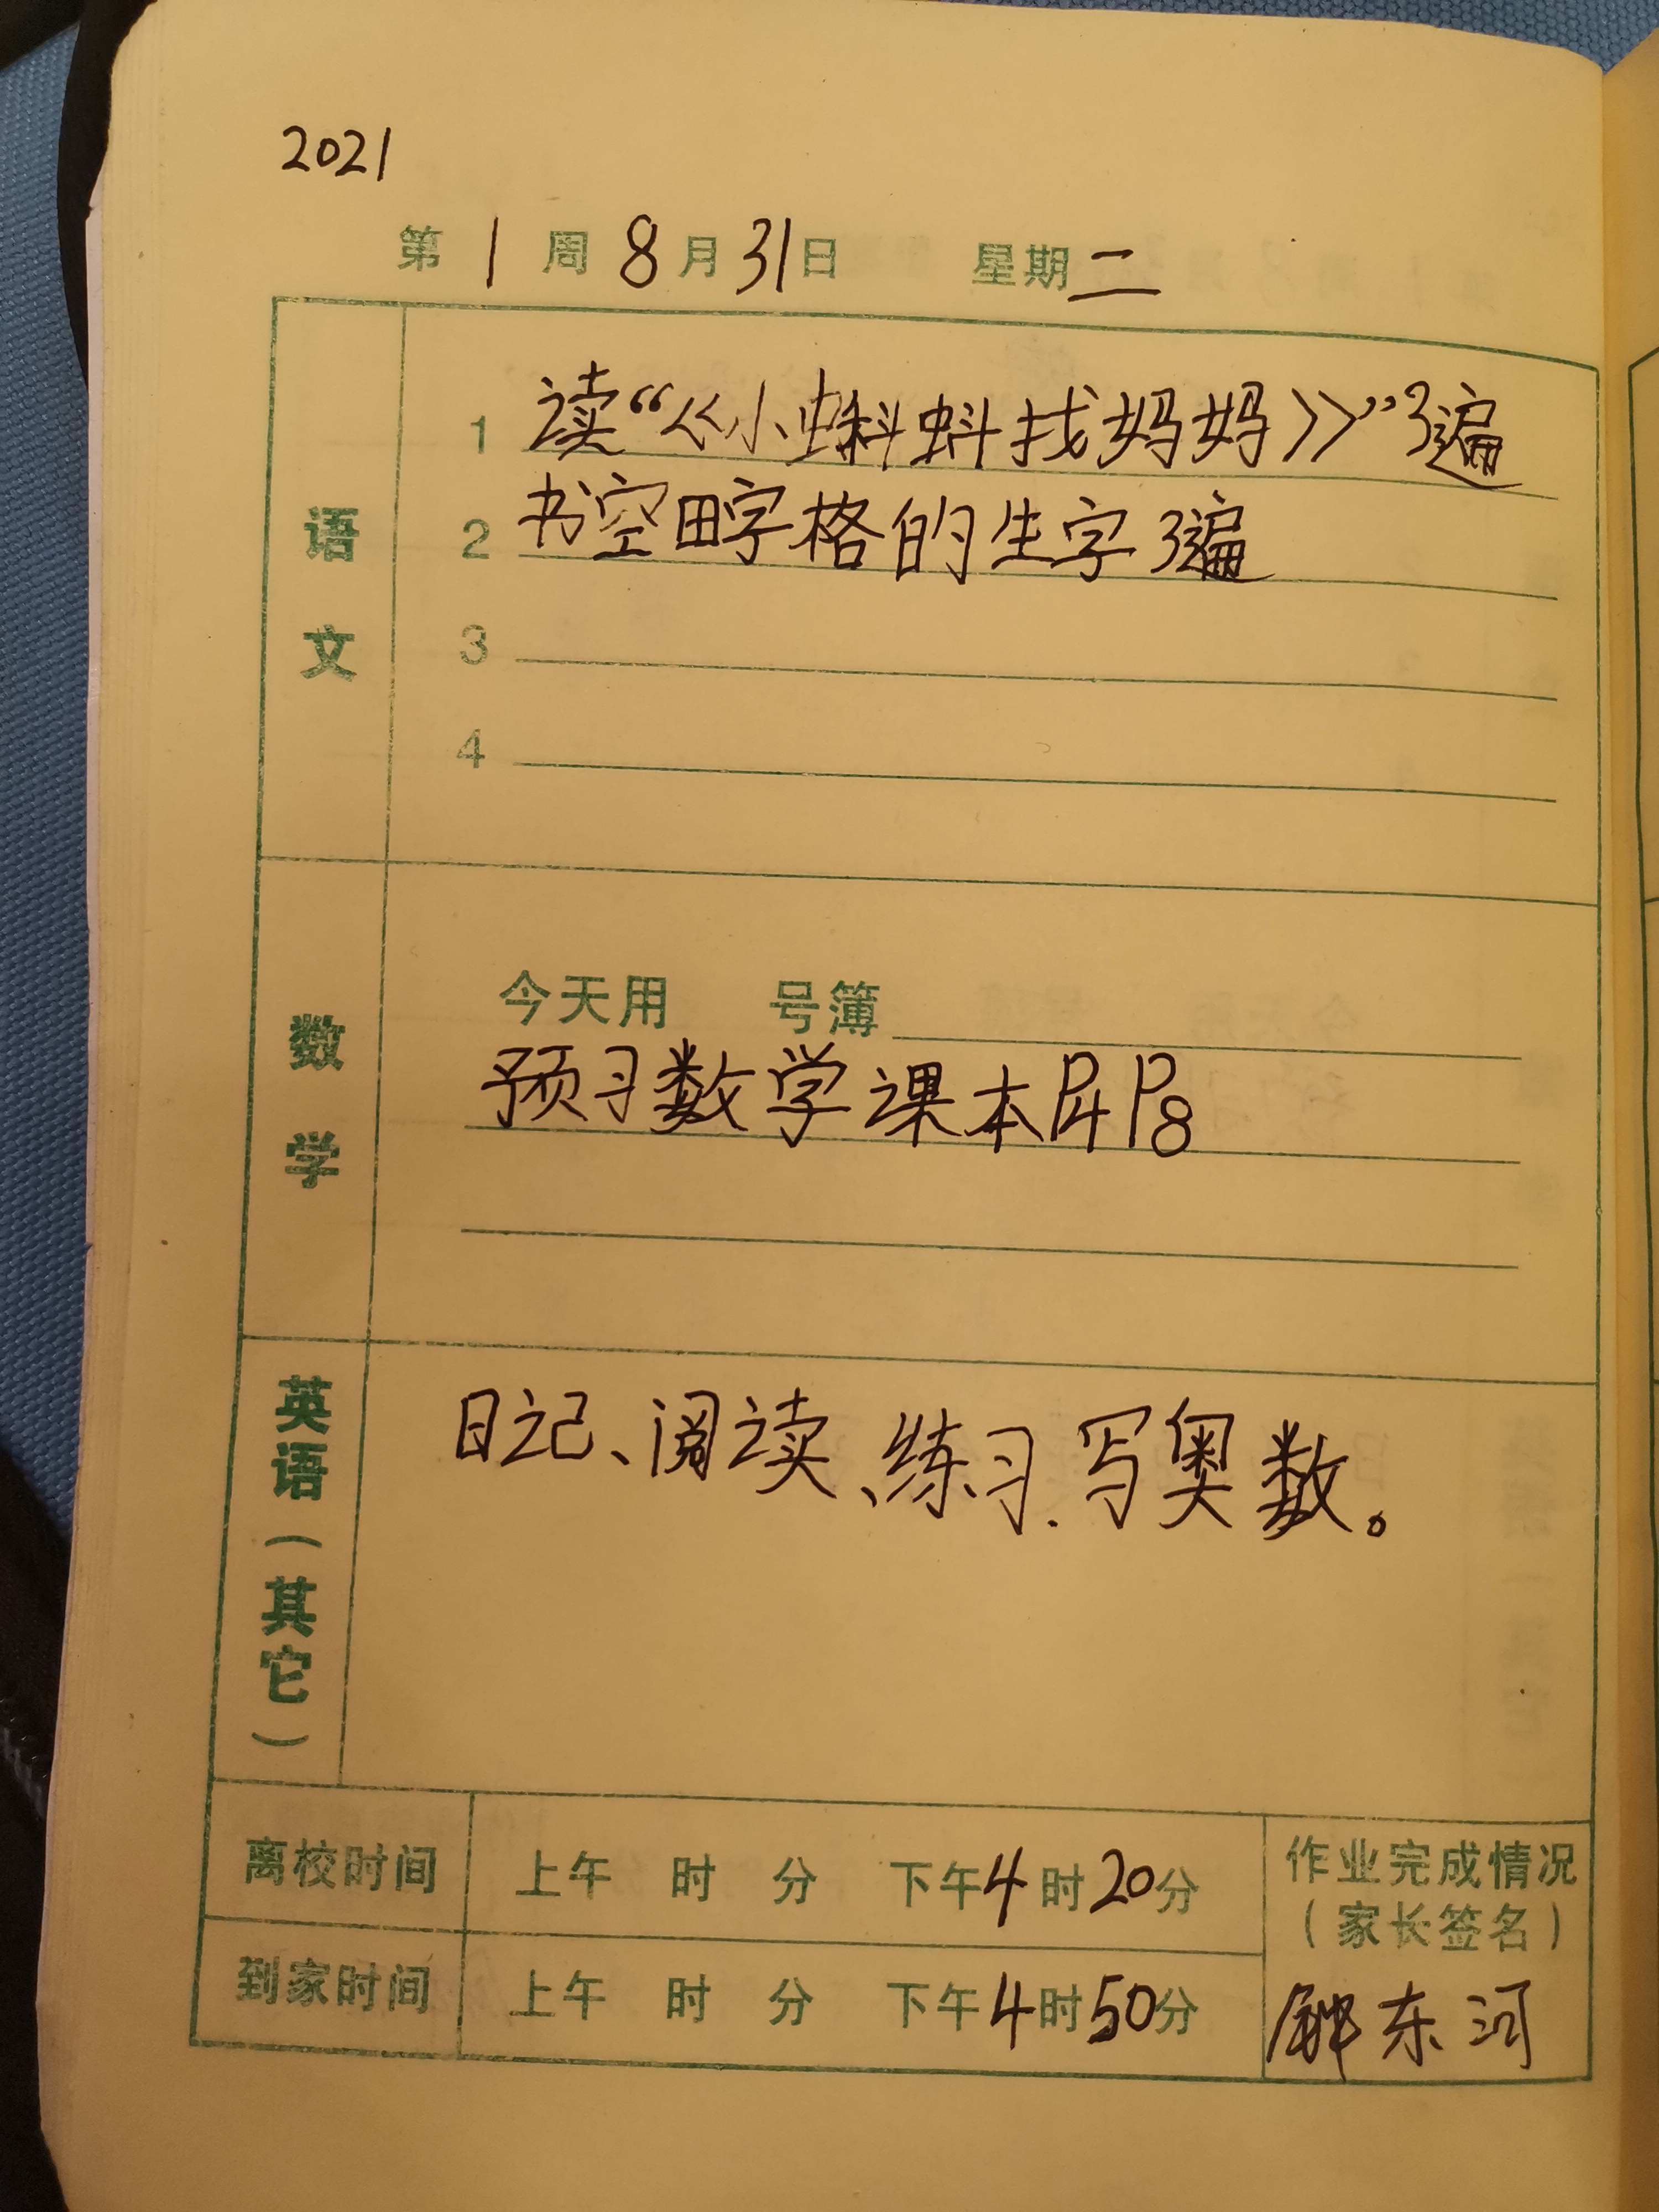 2021
第 1 周 8 月 31 日 星期 二
语文
1 读“《小蝌蚪找妈妈》”3遍
2 书空田字格的生字3遍
3
4
数学
今天用 号簿
预习数学课本P4P8
英语(其它)
日记、阅读、练习、写奥数。
离校时间 上午 时 分 下午 4 时 20 分
到家时间 上午 时 分 下午 4 时 50 分
作业完成情况
(家长签名)
东河